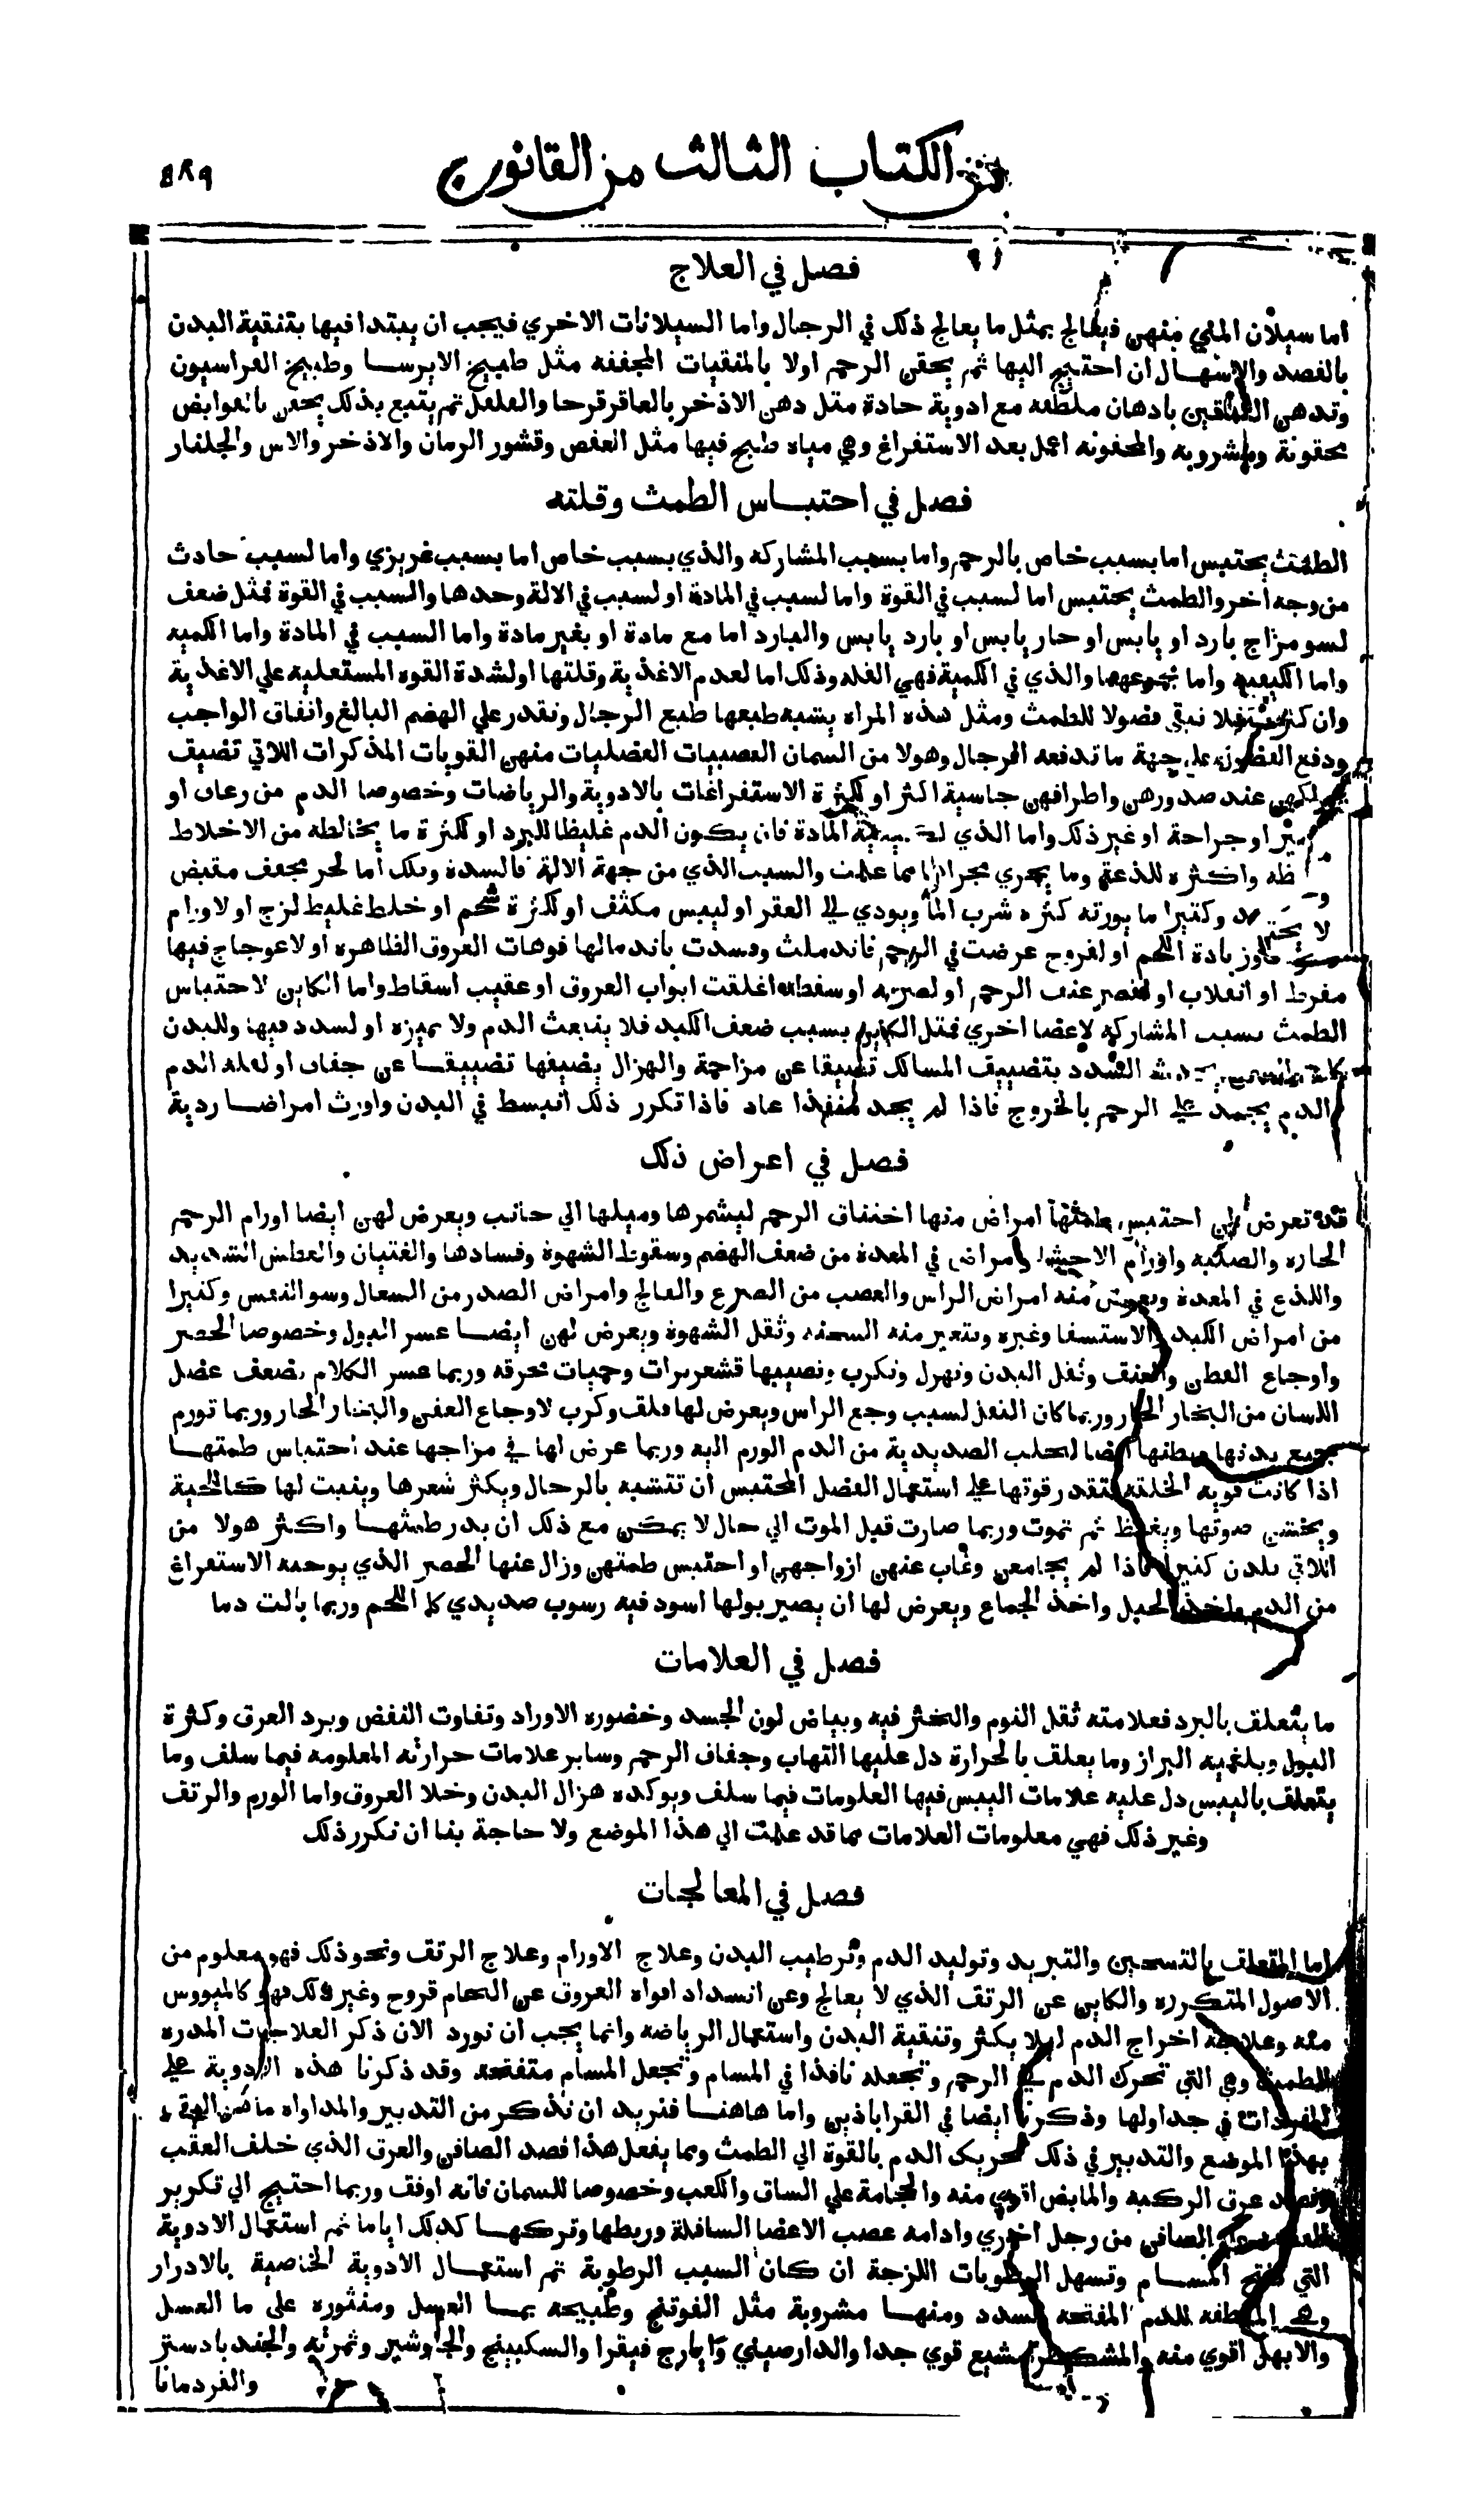 من الكتاب الثالث من القانون
٥٨٩
فصل في العلاج
اما سيلان المني منهن فيعالج بمثل ما يعالج ذلك في الرجال واما السيلانات الاخري فيجب ان يبتدا فيها بتنقية البدن
بالفصد والاسهال ان احتيج اليها ثم يحقن الرحم اولا بالمنقيات المجففه مثل طبيخ الايرسا وطبيخ الفراسيون
وتدهن الساقين بادهان ملطفه مع ادوية حادة مثل دهن الاذخر بالعاقرقرحا والفلفل ثم يتبع بذلك يحقن بالقوابض
محقونة ومشروبه والمحقونه اعمل بعد الاستفراغ وهي مياه طبخ فيها مثل العفص وقشور الرمان والاذخر والاس والجلنار
فصل في احتباس الطمث وقلته
الطمث يحتبس اما بسبب خاص بالرحم واما بسبب المشاركه والذي بسبب خاص اما بسبب غريزي واما لسبب حادث
من وجه اخر والطمث يحتبس اما لسبب في القوة واما لسبب في المادة او لسبب في الالة وحدها والسبب في القوة فمثل ضعف
لسو مزاج بارد او يابس او حار يابس او بارد يابس والبارد اما مع مادة او بغير مادة واما السبب في المادة واما الكميه
واما الكيفيه واما مجموعهما والذي في الكمية فهي القله وذلك اما لعدم الاغذية وقلتها او لشدة القوه المستعليه علي الاغذية
وان كثرت فلا تبقي فضولا للطمث ومثل هذه المراه يشبه طبعها طبع الرجال وتقدر علي الهضم البالغ وانفاق الواجب
ودفع الفضول علي جهة ما تدفعه الرجال وهولا من السمان العصبيات العضليات منهن القويات المذكرات اللاتي تضيق
عند صدورهن واطرافهن جاسية اكثر او لكثرة الاستفراغات بالادوية والرياضات وخصوصا الدم من رعاف او
او جراحة او غير ذلك واما الذي المادة فان يكون الدم غليظا للبرد او لكثرة ما يخالطه من الاخلاط
واكثره للدعة وما يجري مجراها مما علمت والسبب الذي من جهة الالة فالسدة وتلك اما لحر مجفف مقبض
وكثيرا ما يورثه كثره شرب الما ويودي الي العقر او ليبس مكثف او لكثرة شحم او خلط غليظ لزج او لاورام
زيادة اللحم او لقروح عرضت في الرحم فاندملت وفسدت باندمالها فوهات العروق الظاهره او لاعوجاج فيها
مفرط او انقلاب او لقصر عنق الرحم او لضربه او سقطه اغلقت ابواب العروق او عقيب اسقاط واما الكاين لاحتباس
الطمث بسبب المشاركة لاعضا اخري فمثل الكاين بسبب ضعف الكبد فلا ينبعث الدم ولا يميزه او لسدد فيها وللبدن
السدد بتضييق المسالك تضييقا عن مزاحمة والهزال يضيقها تضييقا عن جفاف او لقله الدم
الدم يجمد علي الرحم بالخروج فاذا لم يجد منفذا عاد فاذا تكرر ذلك انبسط في البدن واورث امراضا ردية
فصل في اعراض ذلك
قد تعرض لمن احتبس طمثها امراض منها اختناق الرحم ليشمرها وميلها الي جانب ويعرض لهن ايضا اورام الرحم
الحاره والصلبه واورام الاحشا وامراض في المعدة من ضعف الهضم وسقوط الشهوة وفسادها والغثيان والعطش الشديد
واللذع في المعدة ويعرض منه امراض الراس والعصب من الصرع والفالج وامراض الصدر من السعال وسو النفس وكثيرا
من امراض الكبد والاستسقا وغيره وتتغير منه السحنه وثقل الشهوة ويعرض لهن ايضا عسر البول وخصوصا الحصر
واوجاع القطن والعنق وثقل البدن وتهزل وتكرب وتصيبها قشعريرات وحميات محرقه وربما عسر الكلام لضعف عضل
اللسان من البخار الحار وربما كان الثقل لسبب وجع الراس ويعرض لها قلق وكرب لاوجاع العفن والبخار الحار وربما تورم
جميع بدنها وبطنها ايضا لتحلب الصديدية من الدم الورم اليه وربما عرض لها في مزاجها عند احتباس طمثها
اذا كانت قويه الخلقه تقدر قوتها علي استعمال الفضل المحتبس ان تتشبه بالرجال ويكثر شعرها وينبت لها كاللحية
ويخشن صوتها ويغلظ ثم تموت وربما صارت قبل الموت الي حال لا يمكن مع ذلك ان يدر طمثها واكثر هولا من
اللاتي يلدن كثيرا فاذا لم يجامعن وغاب عنهن ازواجهن او احتبس طمثهن وزال عنها الحصر الذي يوجبه الاستفراغ
من الدم واخذ الحبل واخذ الجماع ويعرض لها ان يصير بولها اسود فيه رسوب صديدي كما اللحم وربما بالت دما
فصل في العلامات
ما يتعلق بالبرد فعلامته ثقل النوم والتخثر فيه وبياض لون الجسد وخضوره الاوراد وتفاوت النفض وبرد العرق وكثرة
البول وبلغميه البراز وما يعلق بالحرارة دل عليها التهاب وجفاف الرحم وساير علامات حرارته المعلومه فيما سلف وما
يتعلق باليبس دل عليه علامات اليبس فيها العلومات فيما سلف ويوكده هزال البدن وخلا العروق واما الورم والرتق
وغير ذلك فهي معلومات العلامات مما قد علمت الي هذا الموضع ولا حاجة بنا ان نكرر ذلك
فصل في المعالجات
اما المتعلق بالتسخين والتبريد وتوليد الدم وترطيب البدن وعلاج الاورام وعلاج الرتق ونحو ذلك فهو معلوم من
الاصول المتكرره والكاين عن الرتق الذي لا يعالج وعن انسداد افواه العروق عن التحام قروح وغير ذلك فهو كالميووس
منه وعلاجه اخراج الدم ليلا يكثر وتنقية البدن واستعمال الرياضه وانما يجب ان نورد الان ذكر العلاجات المدره
للطمث وهي التي تحرك الدم الي الرحم وتجعله نافذا في المسام وتجعل المسام متفتحه وقد ذكرنا هذه الادوية علي
المفردات في جداولها وذكرنا ايضا في القراباذين واما هاهنا فنريد ان نذكر من التدبير والمداواه ما
بهذا الموضع والتدبير في ذلك تحريك الدم بالقوة الي الطمث ومما يفعل هذا فصد الصافن والعرق الذي خلف العقب
وفصد عرق الركبه والمابض اقوي منه والحجامة علي الساق والكعب وخصوصا للسمان فانه اوفق وربما احتيج الي تكرير
الصافن من رجل اخري وادامه عصب الاعضا السافلة وربطها وتركها كذلك اياما ثم استعمال الادوية
التي تفتح المسام وتسهل الرطوبات اللزجة ان كان السبب الرطوبة ثم استعمال الادوية الخاصية بالادرار
وهي الملطفه للدم المفتحه للسدد ومنها مشروبة مثل الفوتنج وطبيخه بما العسل ومنثوره علي ما العسل
والابهل اقوي منه والمشكطرامشيع قوي جدا والدارصيني وايارج فيقرا والسكبينج والجاوشير وثمرته والجندبادستر
والقردمانا